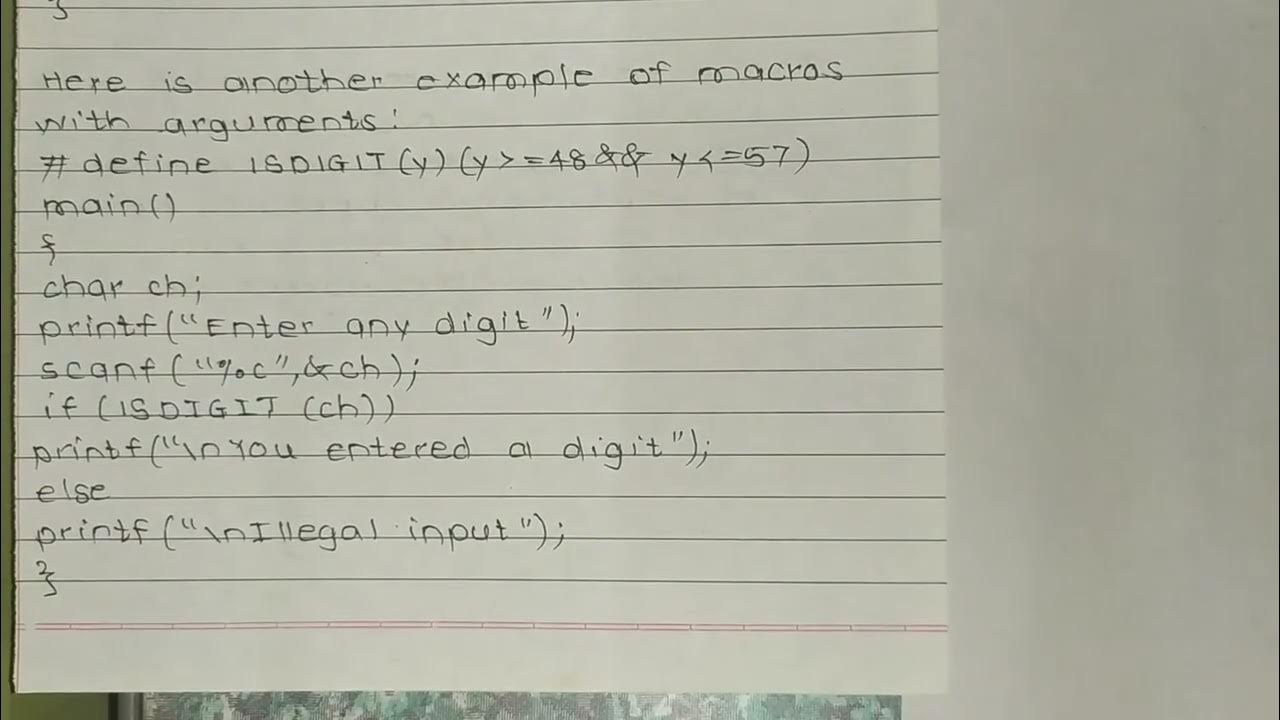 }
Here is another example of macros
with arguments:
# define ISDIGIT(y) (y>=48 && y<=57)
main()
{
char ch;
printf("Enter any digit");
scanf("%c",&ch);
if (ISDIGIT (ch))
printf("\nYou entered a digit");
else
printf("\nIllegal input");
}